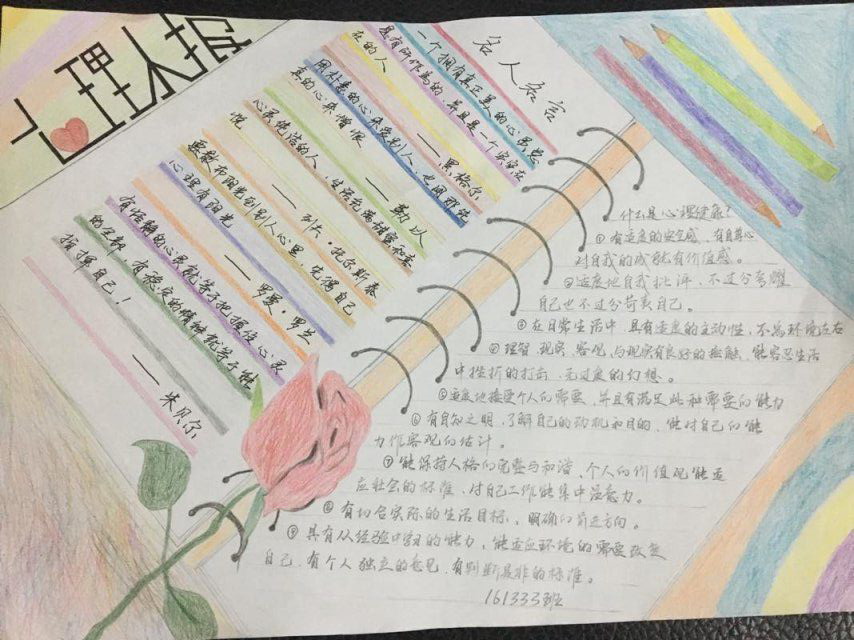 心理小报
名人名言
一个拥有真正美的心灵总
是有所作为的，并且是一个实实在
在的人
——黑格尔
用朴素的心来爱别人，也用那纯
真的心来憎恨
——勒以
心灵纯洁的人，生活充满甜蜜和喜
悦
——列夫·托尔斯泰
要散布阳光到别人心里，先得自己
心理有阳光
——罗曼·罗兰
有清醒的心灵就等于把握住心灵
的全部，有稳定的精神就等于能
指挥自己！
——朱贝尔
什么是心理健康？
①有适度的安全感、有自尊心
对自我的成就有价值感。
②适度地自我批评，不过分夸耀
自己也不过分苛责自己。
③在日常生活中，具有适度的主动性，不为环境左右
④理智 现实、客观，与现实有良好的接触，能容忍生活
中挫折的打击，无过度的幻想。
⑤适度地接受个人的需要，并且有满足此种需要的能力
⑥有自知之明，了解自己的动机和目的，能对自己的能
力作客观的估计。
⑦能保持人格的完整与和谐，个人的价值观能适
应社会的标准，对自己工作能集中注意力。
⑧有切合实际的生活目标，明确的前进方向。
⑨具有从经验中学习的能力，能适应环境的需要改变
自己，有个人独立的意见，有判断是非的标准。
161333班